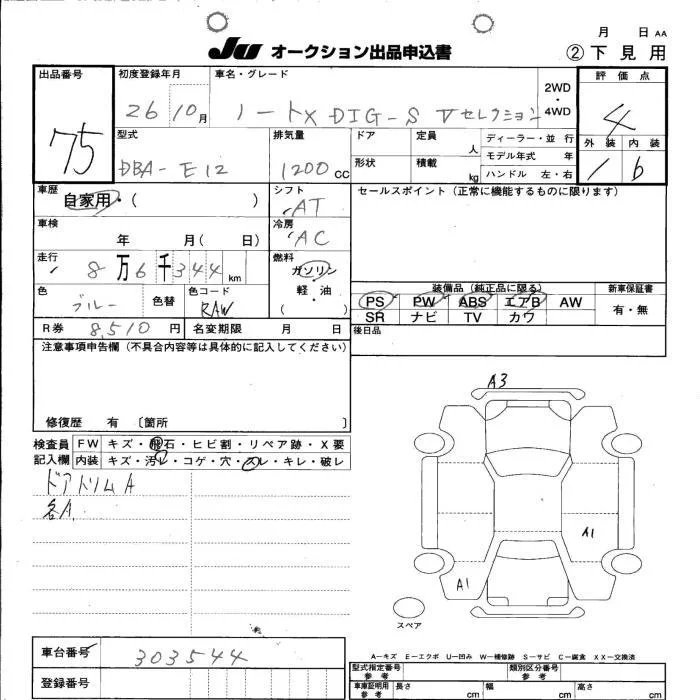 月 日 AA
JU オークション出品申込書 ②下見用
出品番号 初度登録年月 車名・グレード 2WD ・ 4WD 評価点
75 26 10月 ノートX DIG-S Vセレクション 4
型式 排気量 ドア 定員 人 ディーラー・並行 外装 内装
DBA-E12 1200cc 形状 積載 kg モデル年式 年 1 b
ハンドル 左・右
車歴 自家用・( ) シフト AT セールスポイント(正常に機能するものに限ります)
車検 年 月( 日) 冷房 AC
走行 8万6千344km 燃料 ガソリン 軽・油 ( )
色 ブルー 色替 色コード RAW
装備品(純正品に限る) 新車保証書
PS PW ABS エアB AW 有・無
SR ナビ TV カワ
R券 8,510円 名変期限 月 日 後日品
注意事項申告欄(不具合内容等は具体的に記入してください)
修復歴 有 〔箇所 〕
検査員 FW キズ・飛石・ヒビ割・リペア跡・X要
記入欄 内装 キズ・汚レ・コゲ・穴・スレ・キレ・破レ
ドアトリムA
各A
A3
A1
A1
スペア
車台番号 303544
登録番号
A-キズ E-エクボ U-凹み W-補修跡 S-サビ C-腐食 XX-交換済
型式指定番号 参考 類別区分番号 参考
車車証明用 参考 長さ cm 幅 cm 高さ cm